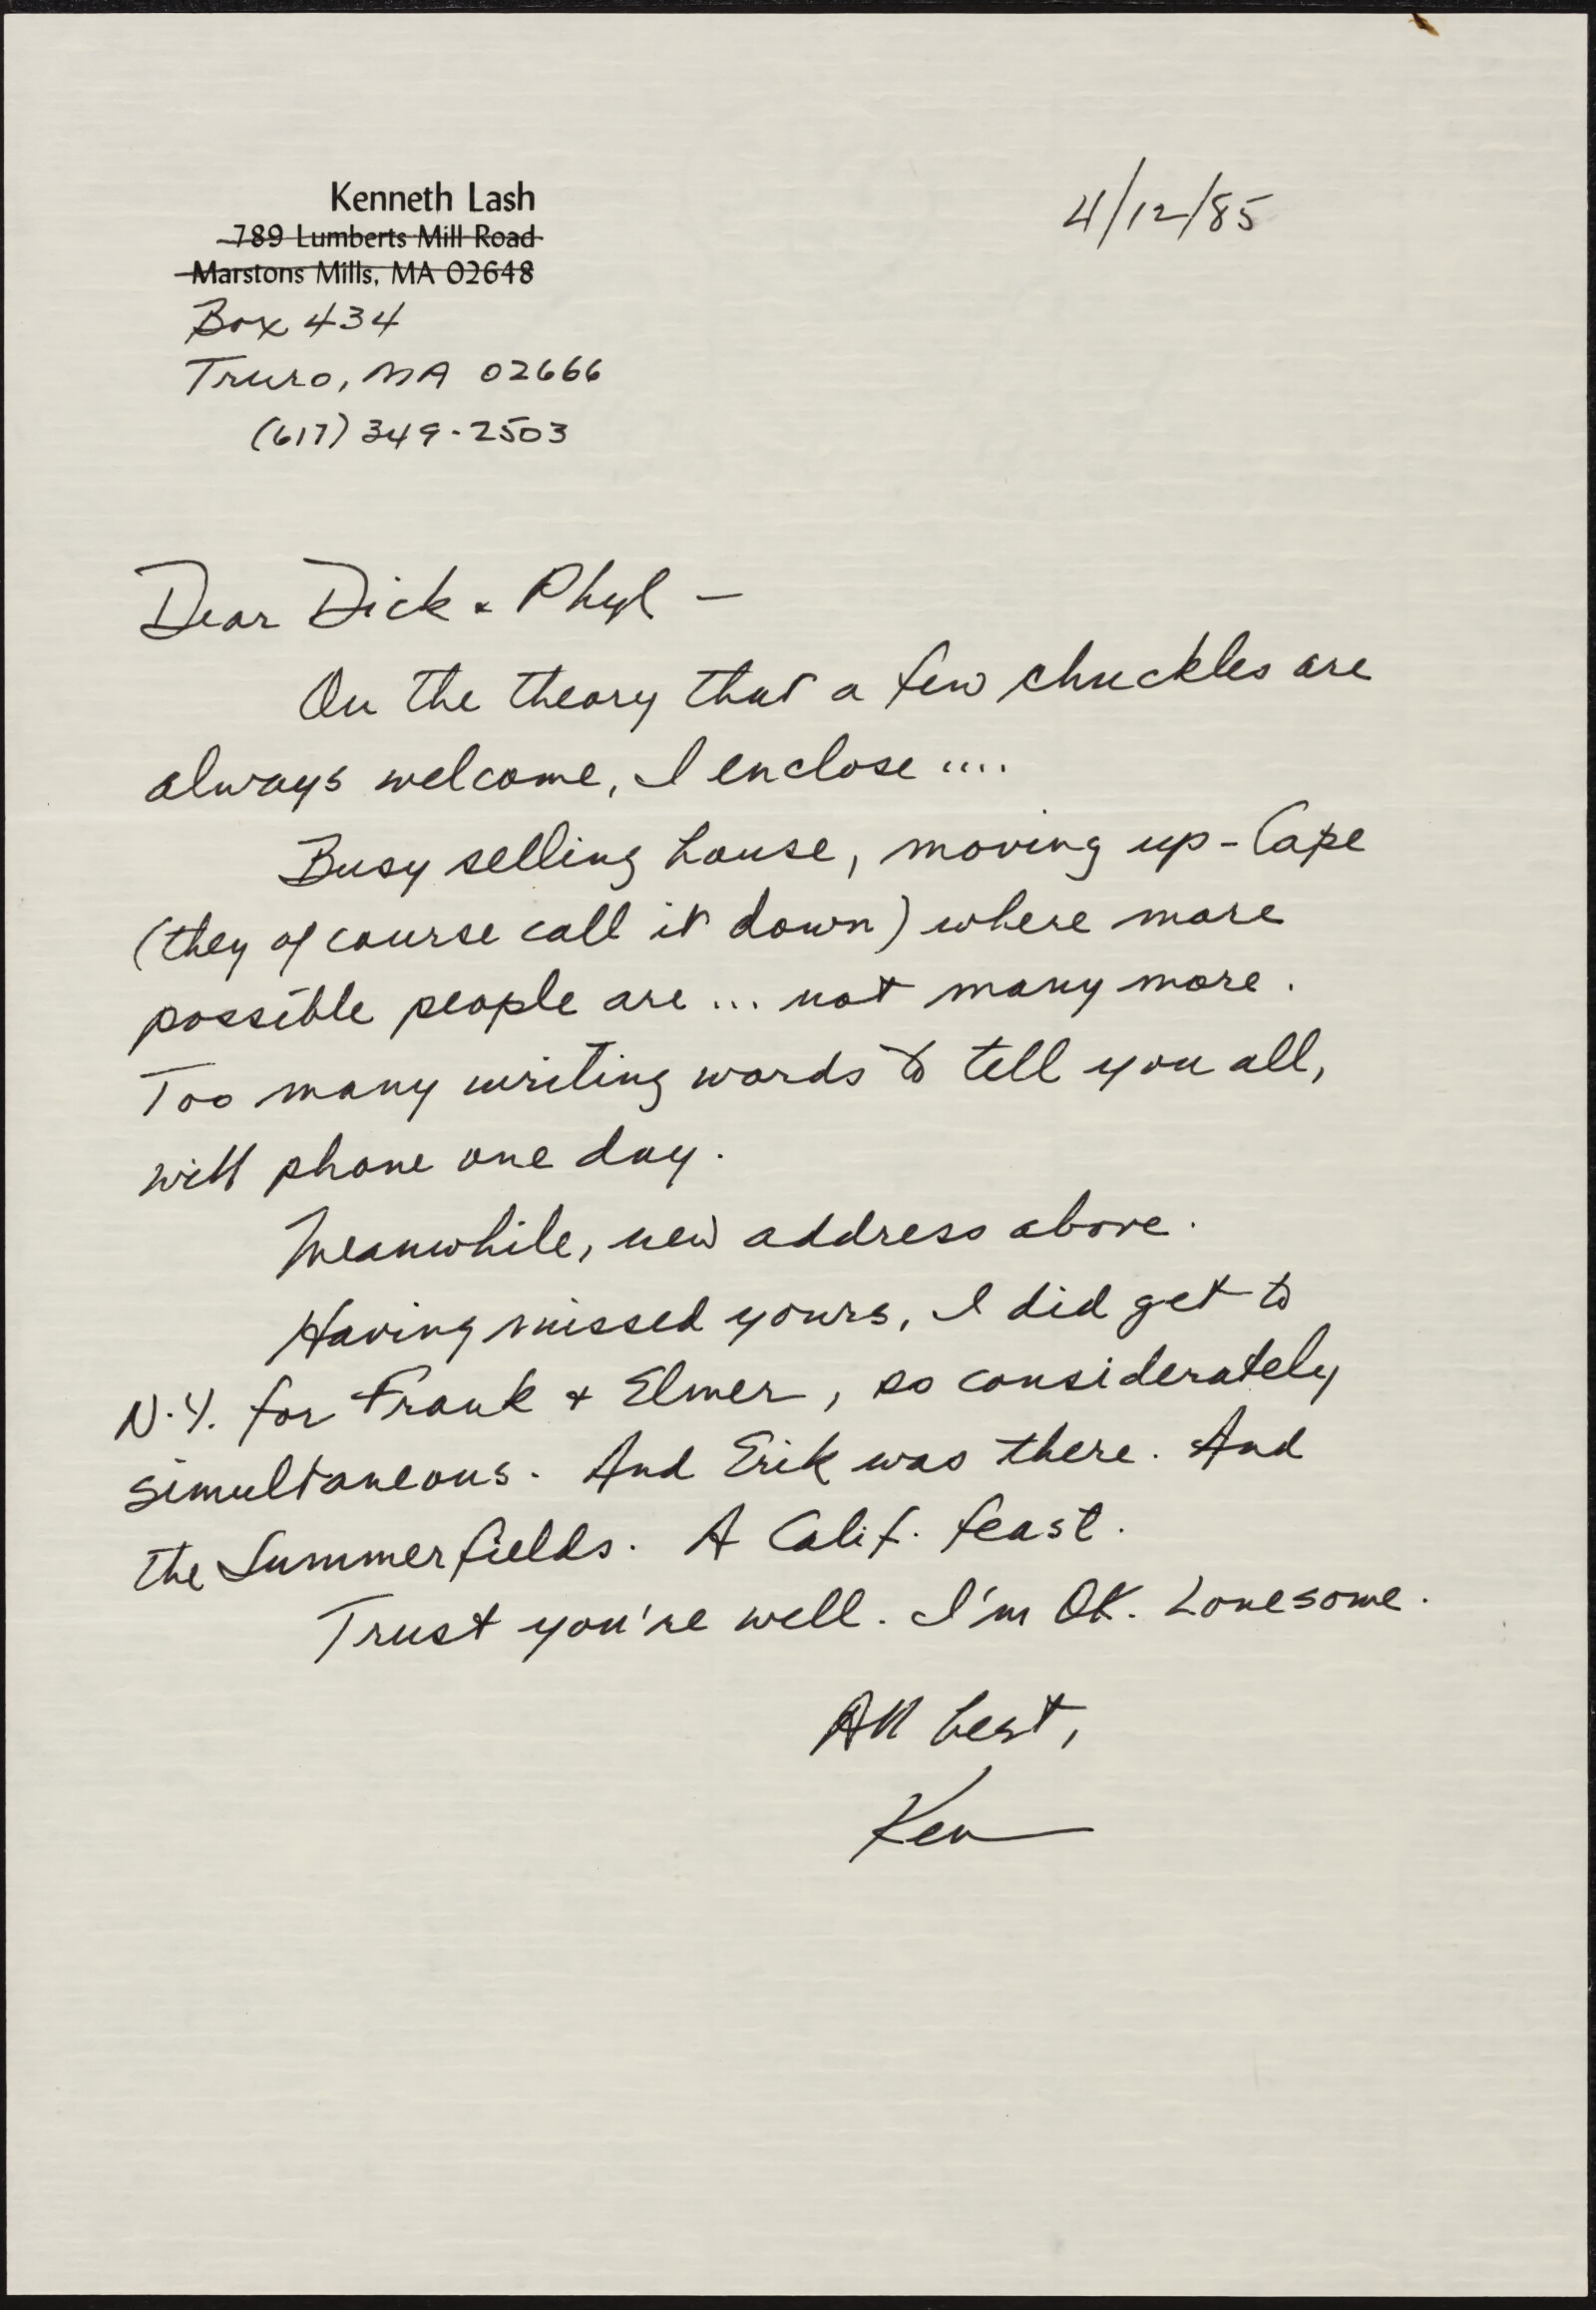 Kenneth Lash
4/12/85
789 Lumberts Mill Road
Marstons Mills, MA 02648
Box 434
Truro, MA 02666
(617) 349-2503
Dear Dick & Phyl -
On the theory that a few chuckles are
always welcome, I enclose ....
Busy selling house, moving up-Cape
(they of course call it down) where more
possible people are ... not many more.
Too many writing words to tell you all,
will phone one day.
Meanwhile, new address above.
Having missed yours, I did get to
N.Y. for Frank + Elmer, so considerately
simultaneous. And Erik was there. And
the Summerfields. A Calif. feast.
Trust you're well. I'm OK. Lonesome.
All best,
Ken